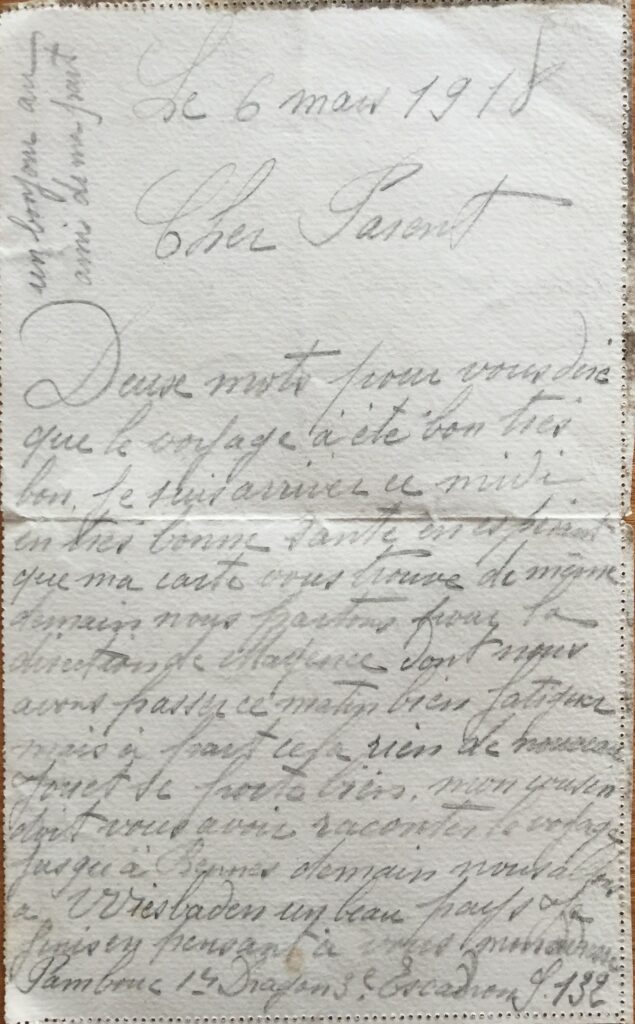 un bonjour au
ami de ma part
Le 6 mars 1918
Cher Parent
Deuse mots pour vous dire
que le voyage à été bon très
bon, je suis arriver ce midi
en très bonne santé, en espérant
que ma carte vous trouve de même
demain nous partons pour la
direction de Mayence dont nous
avons passer ce matin bien fatiguer
mais à part cela rien de nouveau
Jouet se porte bien. mon cousin
doit vous avoir raconter le voyage
jusqu'à Rennes demain nous allons
a Wiesbaden un beau pays
finis en pensant à vous mon adresse
Pambouc 1er Dragon 3e Escadron S. 132